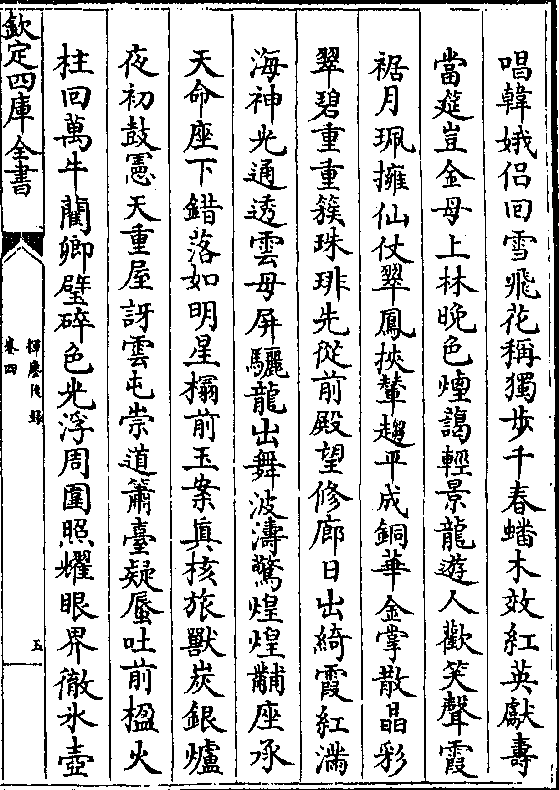 唱韓娥侣回雪飛花稱獨步千春蟠木效紅英獻壽
當筵豈金母上林晚色煙靄輕景龍遊人歡笑聲霞
裾月珮擁仙仗翠鳳挾輦趨平成銅華金掌散晶彩
翠碧重重簇珠琲先從前殿望修廊日出綺霞紅滿
海神光通透雲母屏驪龍出舞波濤驚煌煌黼座承
天命座下錯落如明星榻前玉案真核旅獸炭銀爐
夜初鼓憲天重屋訝雲屯崇道簫臺疑蜃吐前楹火
柱回萬牛藺卿璧碎色光浮周圍照耀眼界徹氷壺
欽定四庫全書
揮麈後錄
卷四
五